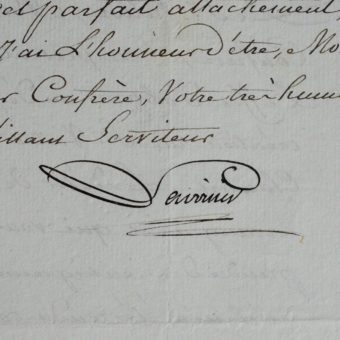 parfait attachement,
J'ai L'honneur d'être, Mo
Confrère, Votre très hum
issant Serviteur